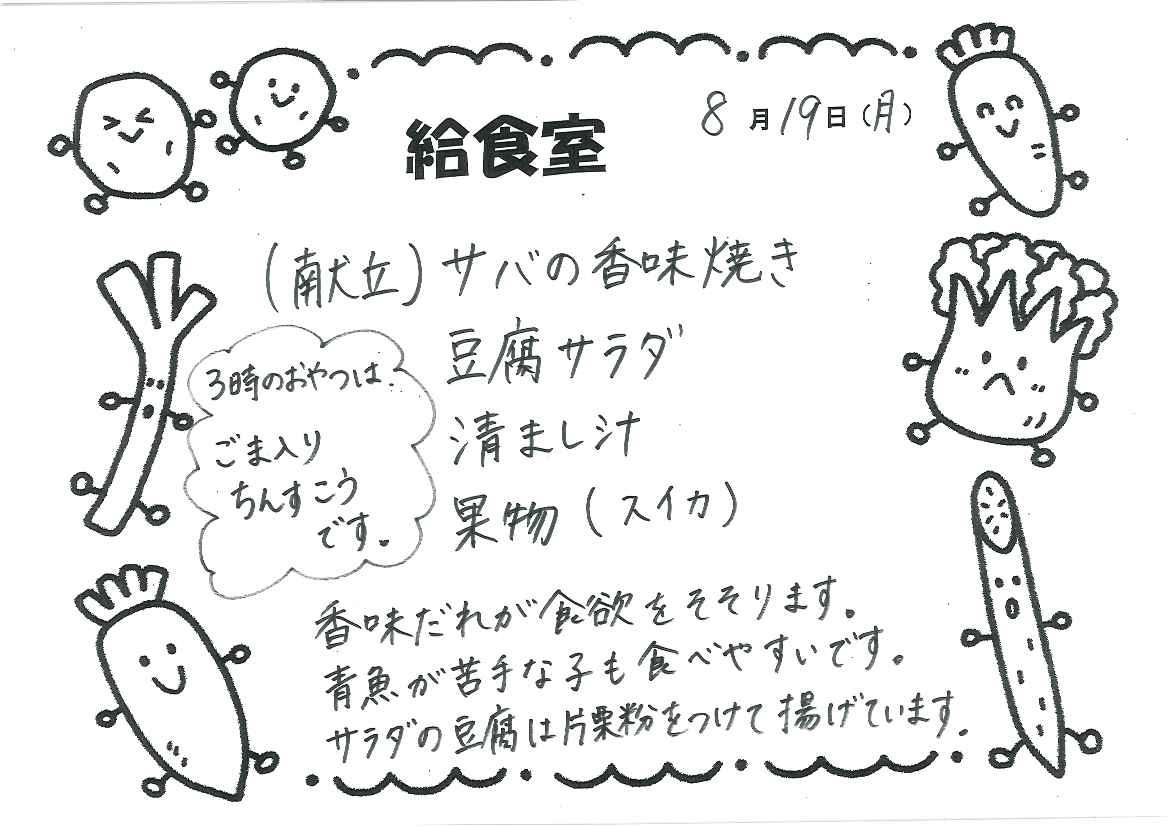 8月19日(月)
給食室
(献立)サバの香味焼き
豆腐サラダ
清まし汁
果物(スイカ)
3時のおやつは?
ごま入り
ちんすこう
です。
香味だれが食欲をそそります。
青魚が苦手な子も食べやすいです。
サラダの豆腐は片栗粉をつけて揚げています。